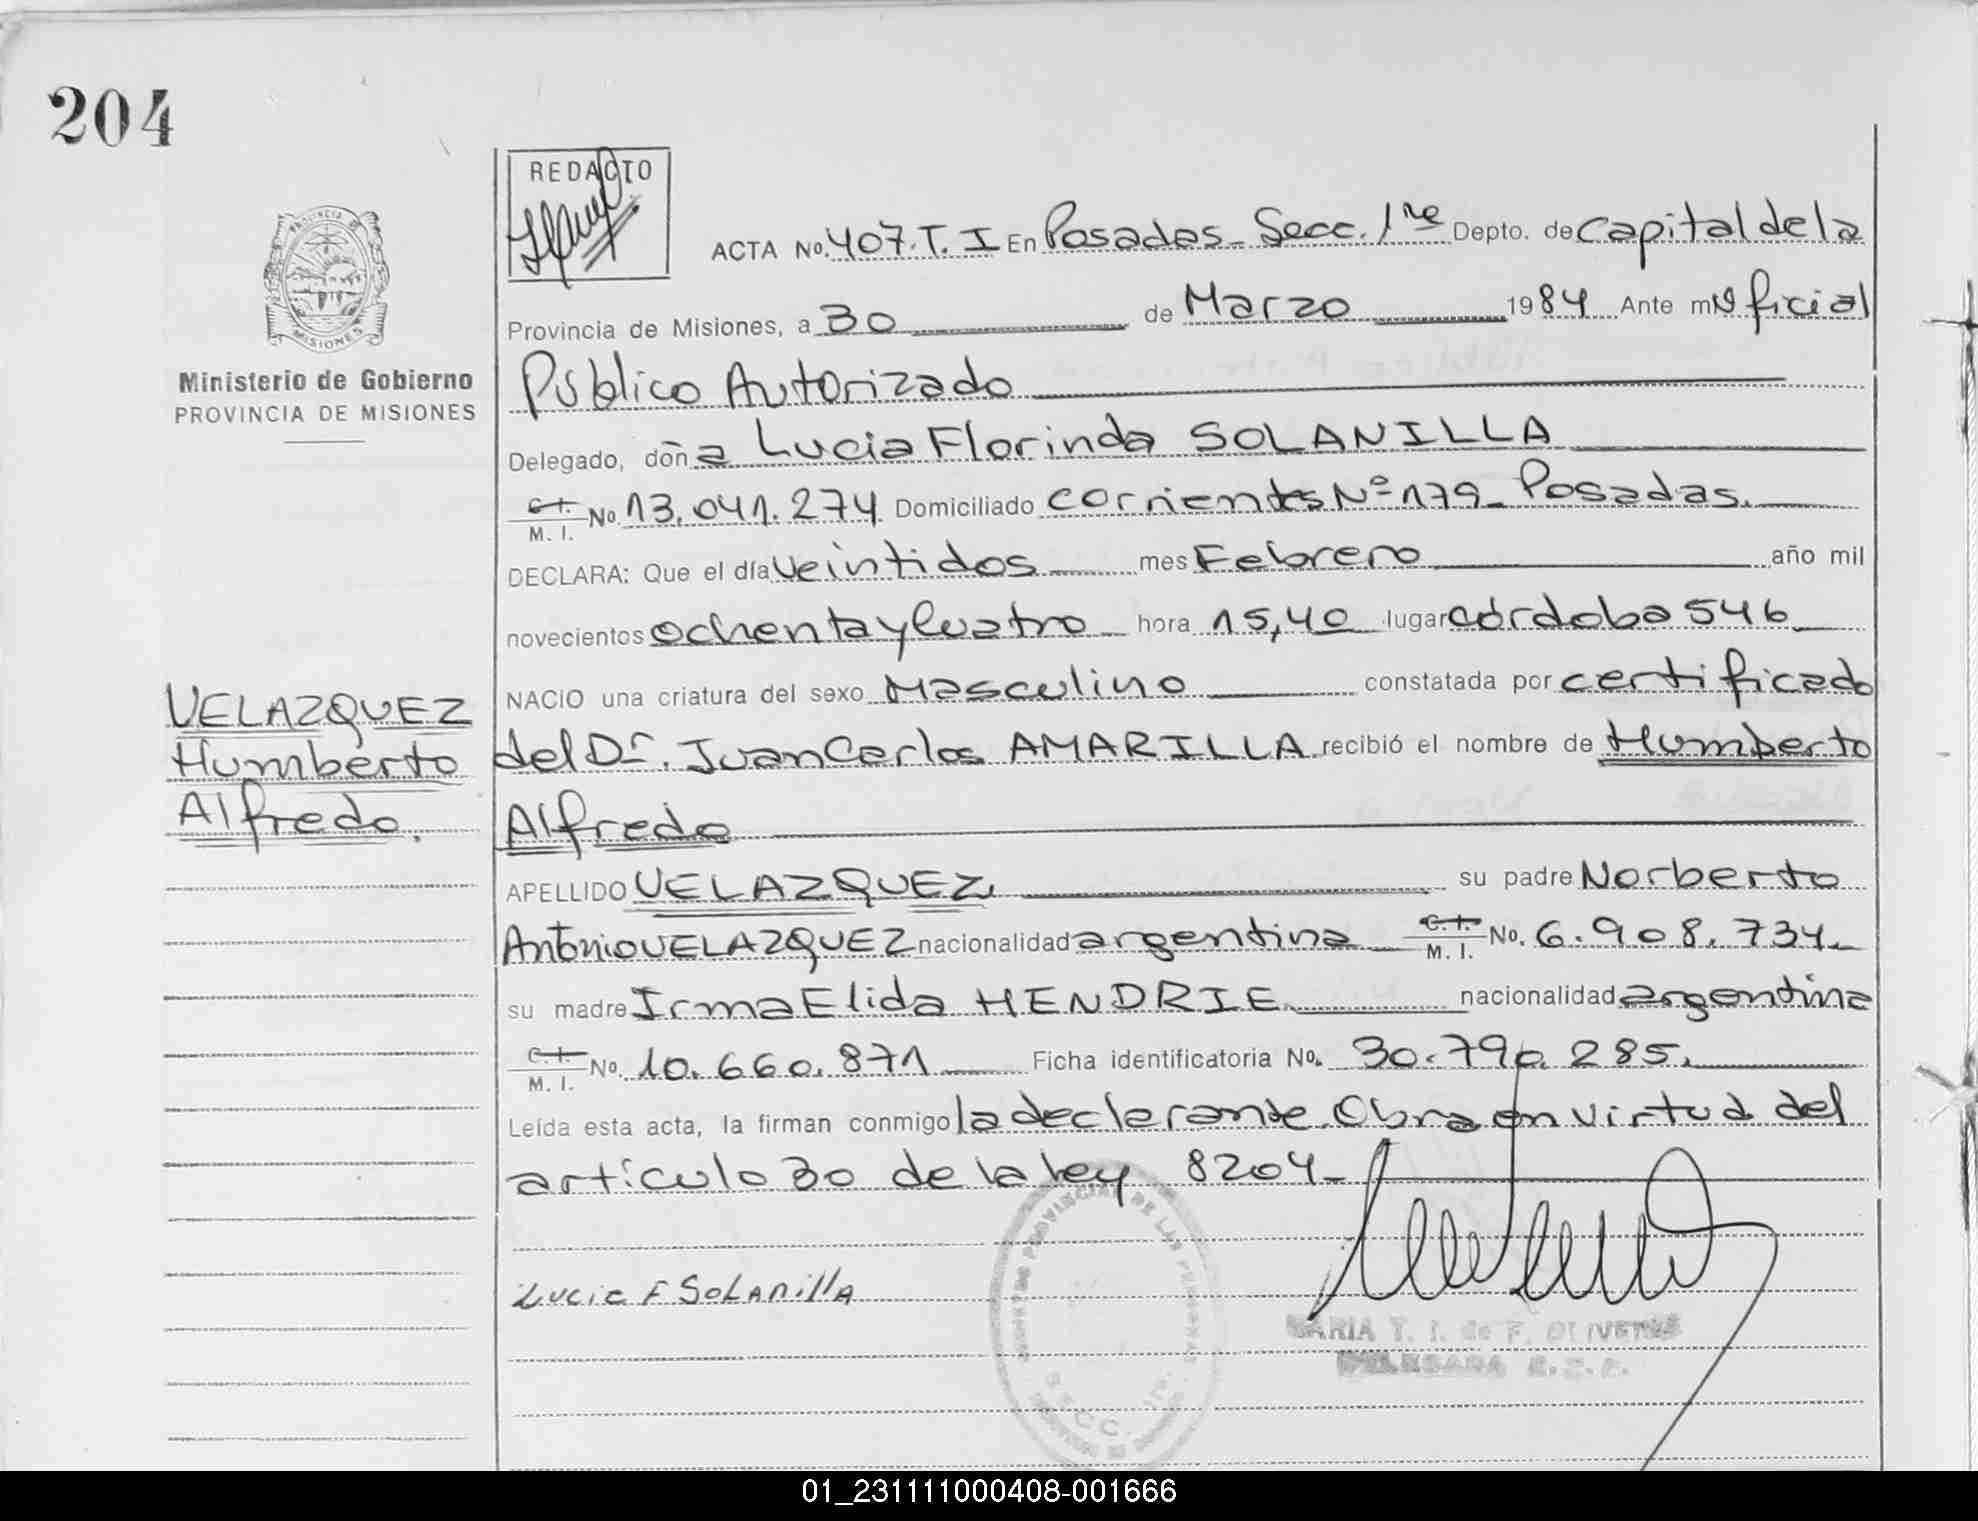 204
REDACTO
PROVINCIA DE
MISIONES
Ministerio de Gobierno
PROVINCIA DE MISIONES
ACTA No. 407.T.I En Posadas - Secc. 1ra Depto. de Capital de la
Provincia de Misiones, a 30 de Marzo 1984 Ante mi Oficial
Público Autorizado
Delegado, doña Lucia Florinda SOLANILLA
C.I. M. I. No. 13.041.274 Domiciliado Corrientes Nº 179 - Posadas.
DECLARA: Que el día veintidos mes Febrero año mil
novecientos ochenta y Cuatro hora 15,40 lugar Córdoba 546
NACIO una criatura del sexo Masculino constatada por certificado
del Dr. Juan Carlos AMARILLA recibió el nombre de Humberto
Alfredo
VELAZQUEZ
Humberto
Alfredo.
APELLIDO VELAZQUEZ su padre Norberto
Antonio VELAZQUEZ nacionalidad argentina C.I. M. I. No. 6.908.734
su madre Irma Elida HENDRIE nacionalidad argentina
C.I. M. I. No. 10.660.871 Ficha identificatoria No. 30.790.285.
Leída esta acta, la firman conmigo la declarante. Obra en virtud del
artículo 30 de la ley 8204-
Lucia F SoLAnillA
PROVINCIAL DE LAS PERSONAS
SECC. 1ra.
MARIA T. I. de F. OLIVEIRA
DELEGADA
01_231111000408-001666